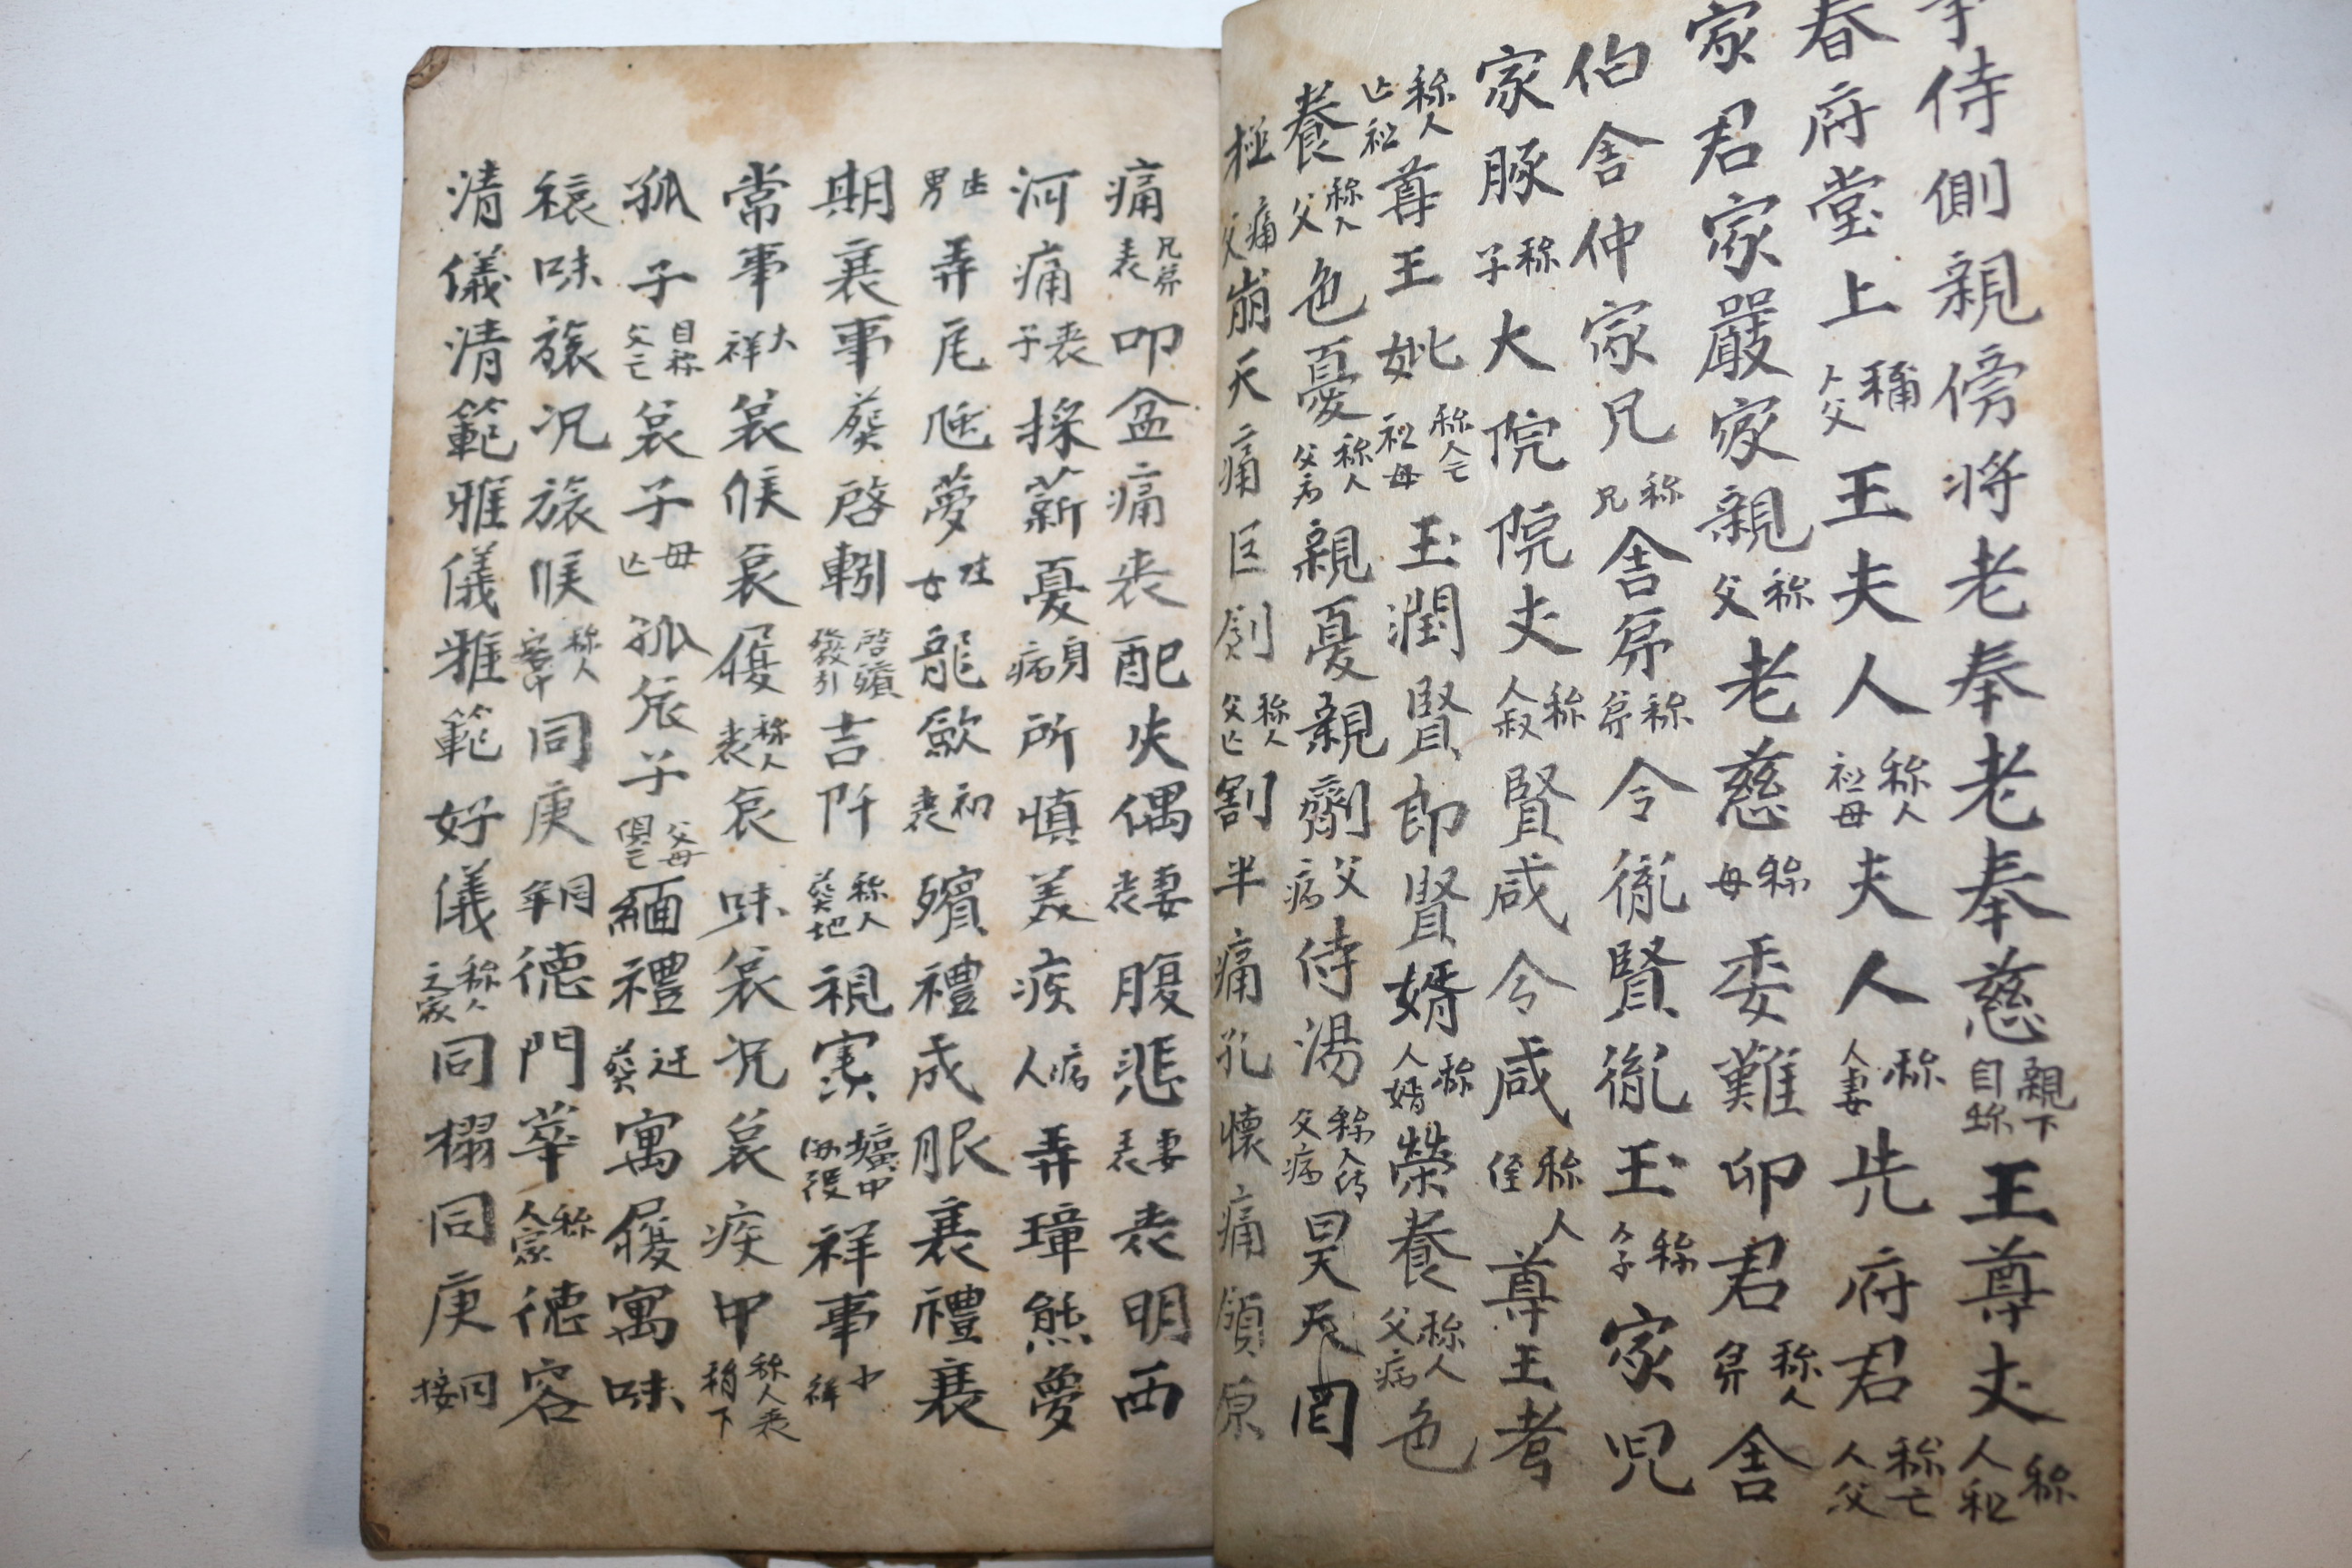 侍側親傍將老奉老奉慈親下自称王尊丈称人祖
春府堂上稱人父王夫人称人祖母夫人称人妻先府君称亡人父
家君家嚴家親称父老慈称母委難卯君称人弟舍
伯舍仲家兄称兄舍弟称弟令胤賢胤玉称人子家兒
家豚称子大院院丈称人叔賢咸令咸称人侄尊王考
称人亡祖尊王妣称人亡祖母玉潤賢郎賢婿称人婿榮養称人父病色
養称人父色憂称人父病親憂親劑父病侍湯称人侍父病昊天罔
極痛父崩天痛巨創称人父亡割半痛孔懷痛領原
痛兄弟喪叩盆痛喪配失偶妻喪腹悲妻喪喪明西
河痛喪子採薪憂身病所慎美疾病人弄璋熊夢
生男弄瓦虺夢生女龍歛初喪殯禮成服襄禮襄
期襄事葬啓靷啓殯發引吉阡称人葬地視窆壙中祥事小祥
常事大祥哀候哀履称人喪哀味哀况哀疾甲称人喪稍下
孤子自称父亡哀子母亡孤哀子父母俱亡緬禮迁葬寓履寓味
味旅况旅候称人客中同庚同年德門華称人家德容
清儀清範雅儀雅範好儀称人之家同榻同庚同接